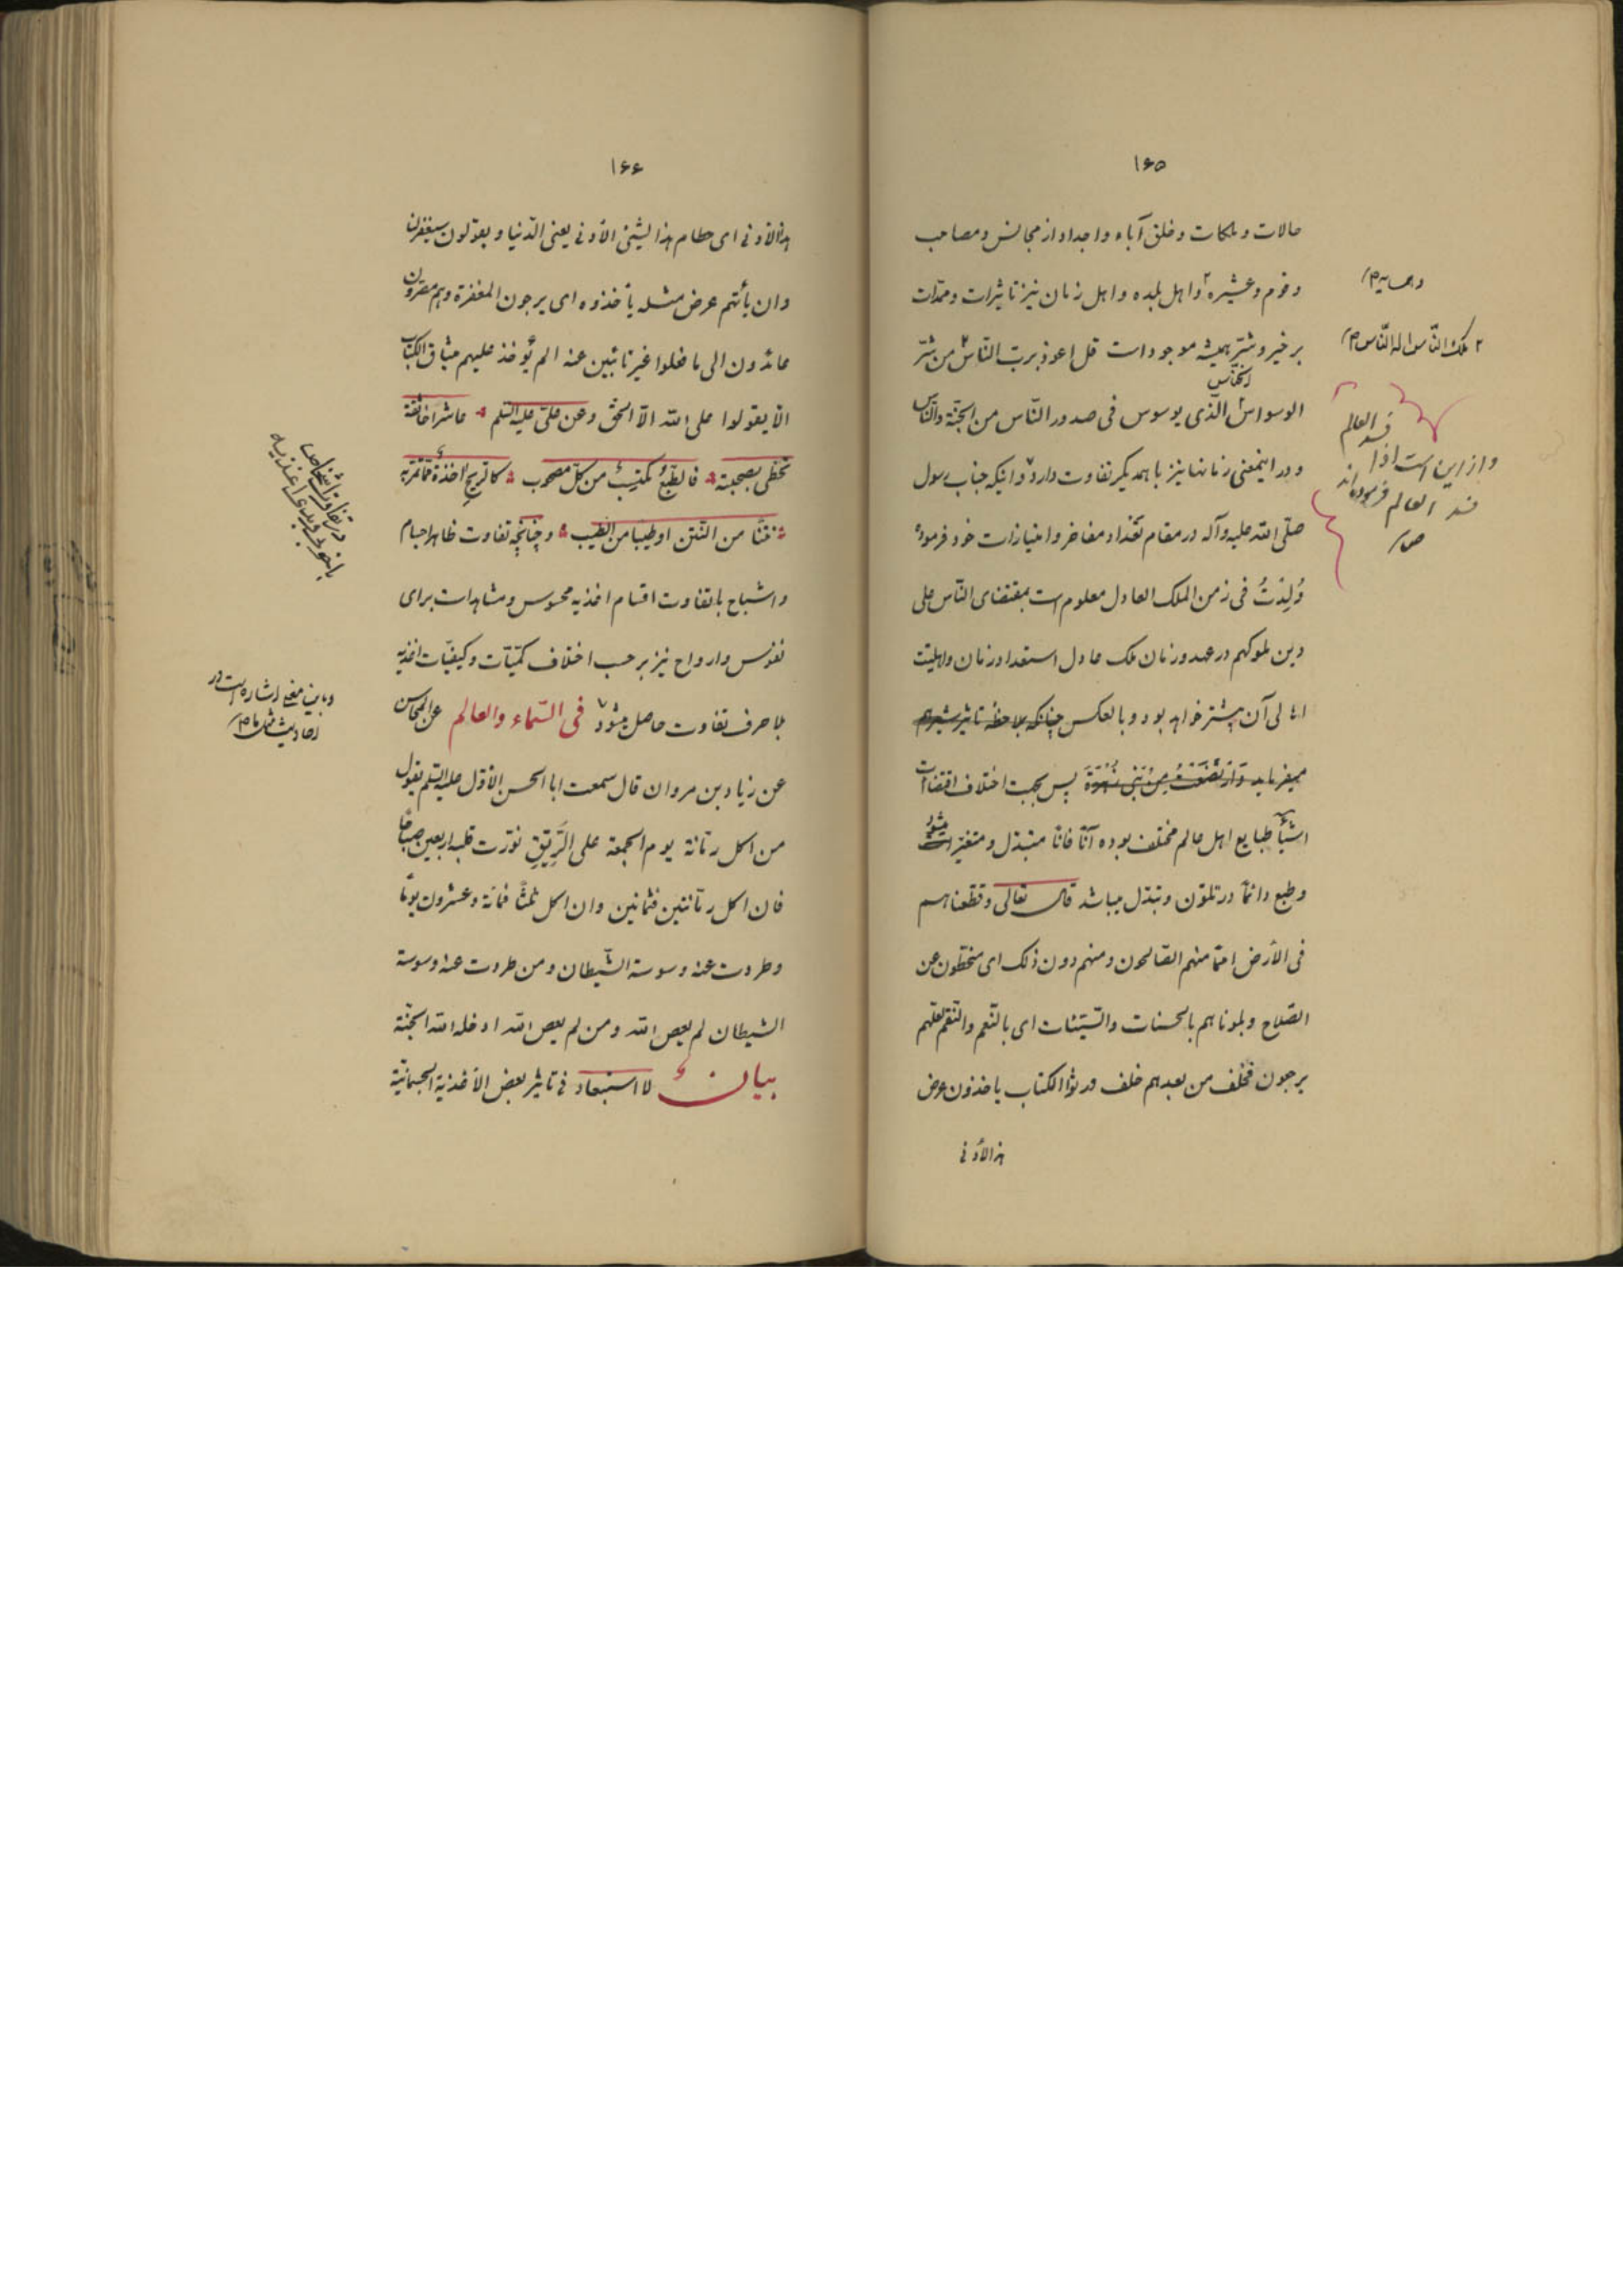 ۱۶۵
حالات و ملکات و خلق آباء و اجداد از مجالس و مصاحب
و قوم و عشیره ۲ و اهل بلده و اهل زمان نیز تاثیرات و ممدّات
و همسایه صح
بر خیر و شرّ همیشه موجود است قل اعوذ بربّ النّاس ۲ من شرّ
۲ ملک النّاس اله النّاس صح
الوسواس الخنّاس الّذی یوسوس فی صدور النّاس من الجنّة والنّاس
و در اینمعنی زمانها نیز با همدیگر تفاوت دارد و اینکه جناب رسول
و از این است اذا فسد العالم
فسد العالم فرموده‌اند
صح
صلّی الله علیه وآله در مقام تعداد مفاخر و امتیازات خود فرموده
وُلِدْتُ فی زمن الملک العادل معلوم است بمقتضای النّاس علی
دین ملوکهم در عهد و زمان ملک عادل استعداد زمان و اهلیّت
اهالی آن بیشتر خواهد بود و بالعکس چنانکه بملاحظه تاثیر شیر هم
میفرماید پس بجهت اختلاف اقتضاآت
اشیآء طبایع اهل عالم مختلف بوده آنًا فانًا متبدّل و متغیّر میشود
و طبع دائمًا در تلوّن و تبدّل میباشد قال تعالی وقطّعناهم
فی الأرض امما منهم الصّالحون ومنهم دون ذلک ای منحطّون عن
الصّلاح وبلوناهم بالحسنات والسّیّئات ای بالنّعم والنّقم لعلّهم
یرجعون فخلف من بعدهم خلف ورثوا الکتاب یاخذون عرض
هذا الأدنی
۱۶۶
هذا الأدنی ای حطام هذا الشّیئ الأدنی یعنی الدّنیا ویقولون سیغفر لنا
وان یأتهم عرض مثله یأخذوه ای یرجون المغفرة وهم مصرّون
عائدون الی ما فعلوا غیر تائبین عنه الم یؤخذ علیهم میثاق الکتاب
الّا یقولوا علی الله الّا الحقّ وعن علیّ علیه السّلم عاشر اخا ثقة
تحظی بصحبته فالطّبع مکتسِبٌ من کلّ مصحوب کالرّیح اخذة ممّا تمرّ به
نتنًا من النّتن او طیبًا من الطّیب و چنانچه تفاوت ظاهر اجسام
در تفاوت اشخاص
بخوب و بدی اغذیه
و اشباح با تفاوت اقسام اغذیه محسوس و مشاهد است برای
نفوس و ارواح نیز بر حسب اختلاف کمّیّات و کیفیّات اغذیه
بلا حرف تفاوت حاصل میشود ۷ فی السّماء والعالم عن المحاسن
و باین معنی اشاره است در
احادیث مثل ما صح
عن زیاد بن مروان قال سمعت ابا الحسن الأوّل علیه السّلم یقول
من اکل رمّانة یوم الجمعة علی الرّیقِ نوّرت قلبه اربعین صباحًا
فان اکل رمّانتین فثمانین وان اکل ثلثًا فمائة وعشرون یومًا
وطردت عنه وسوسة الشّیطان ومن طردت عنه وسوسة
الشیطان لم یعص الله ومن لم یعص الله ادخله الله الجنّة
بیان لا استبعاد فی تاثیر بعض الأغذیة الجسمانیّة